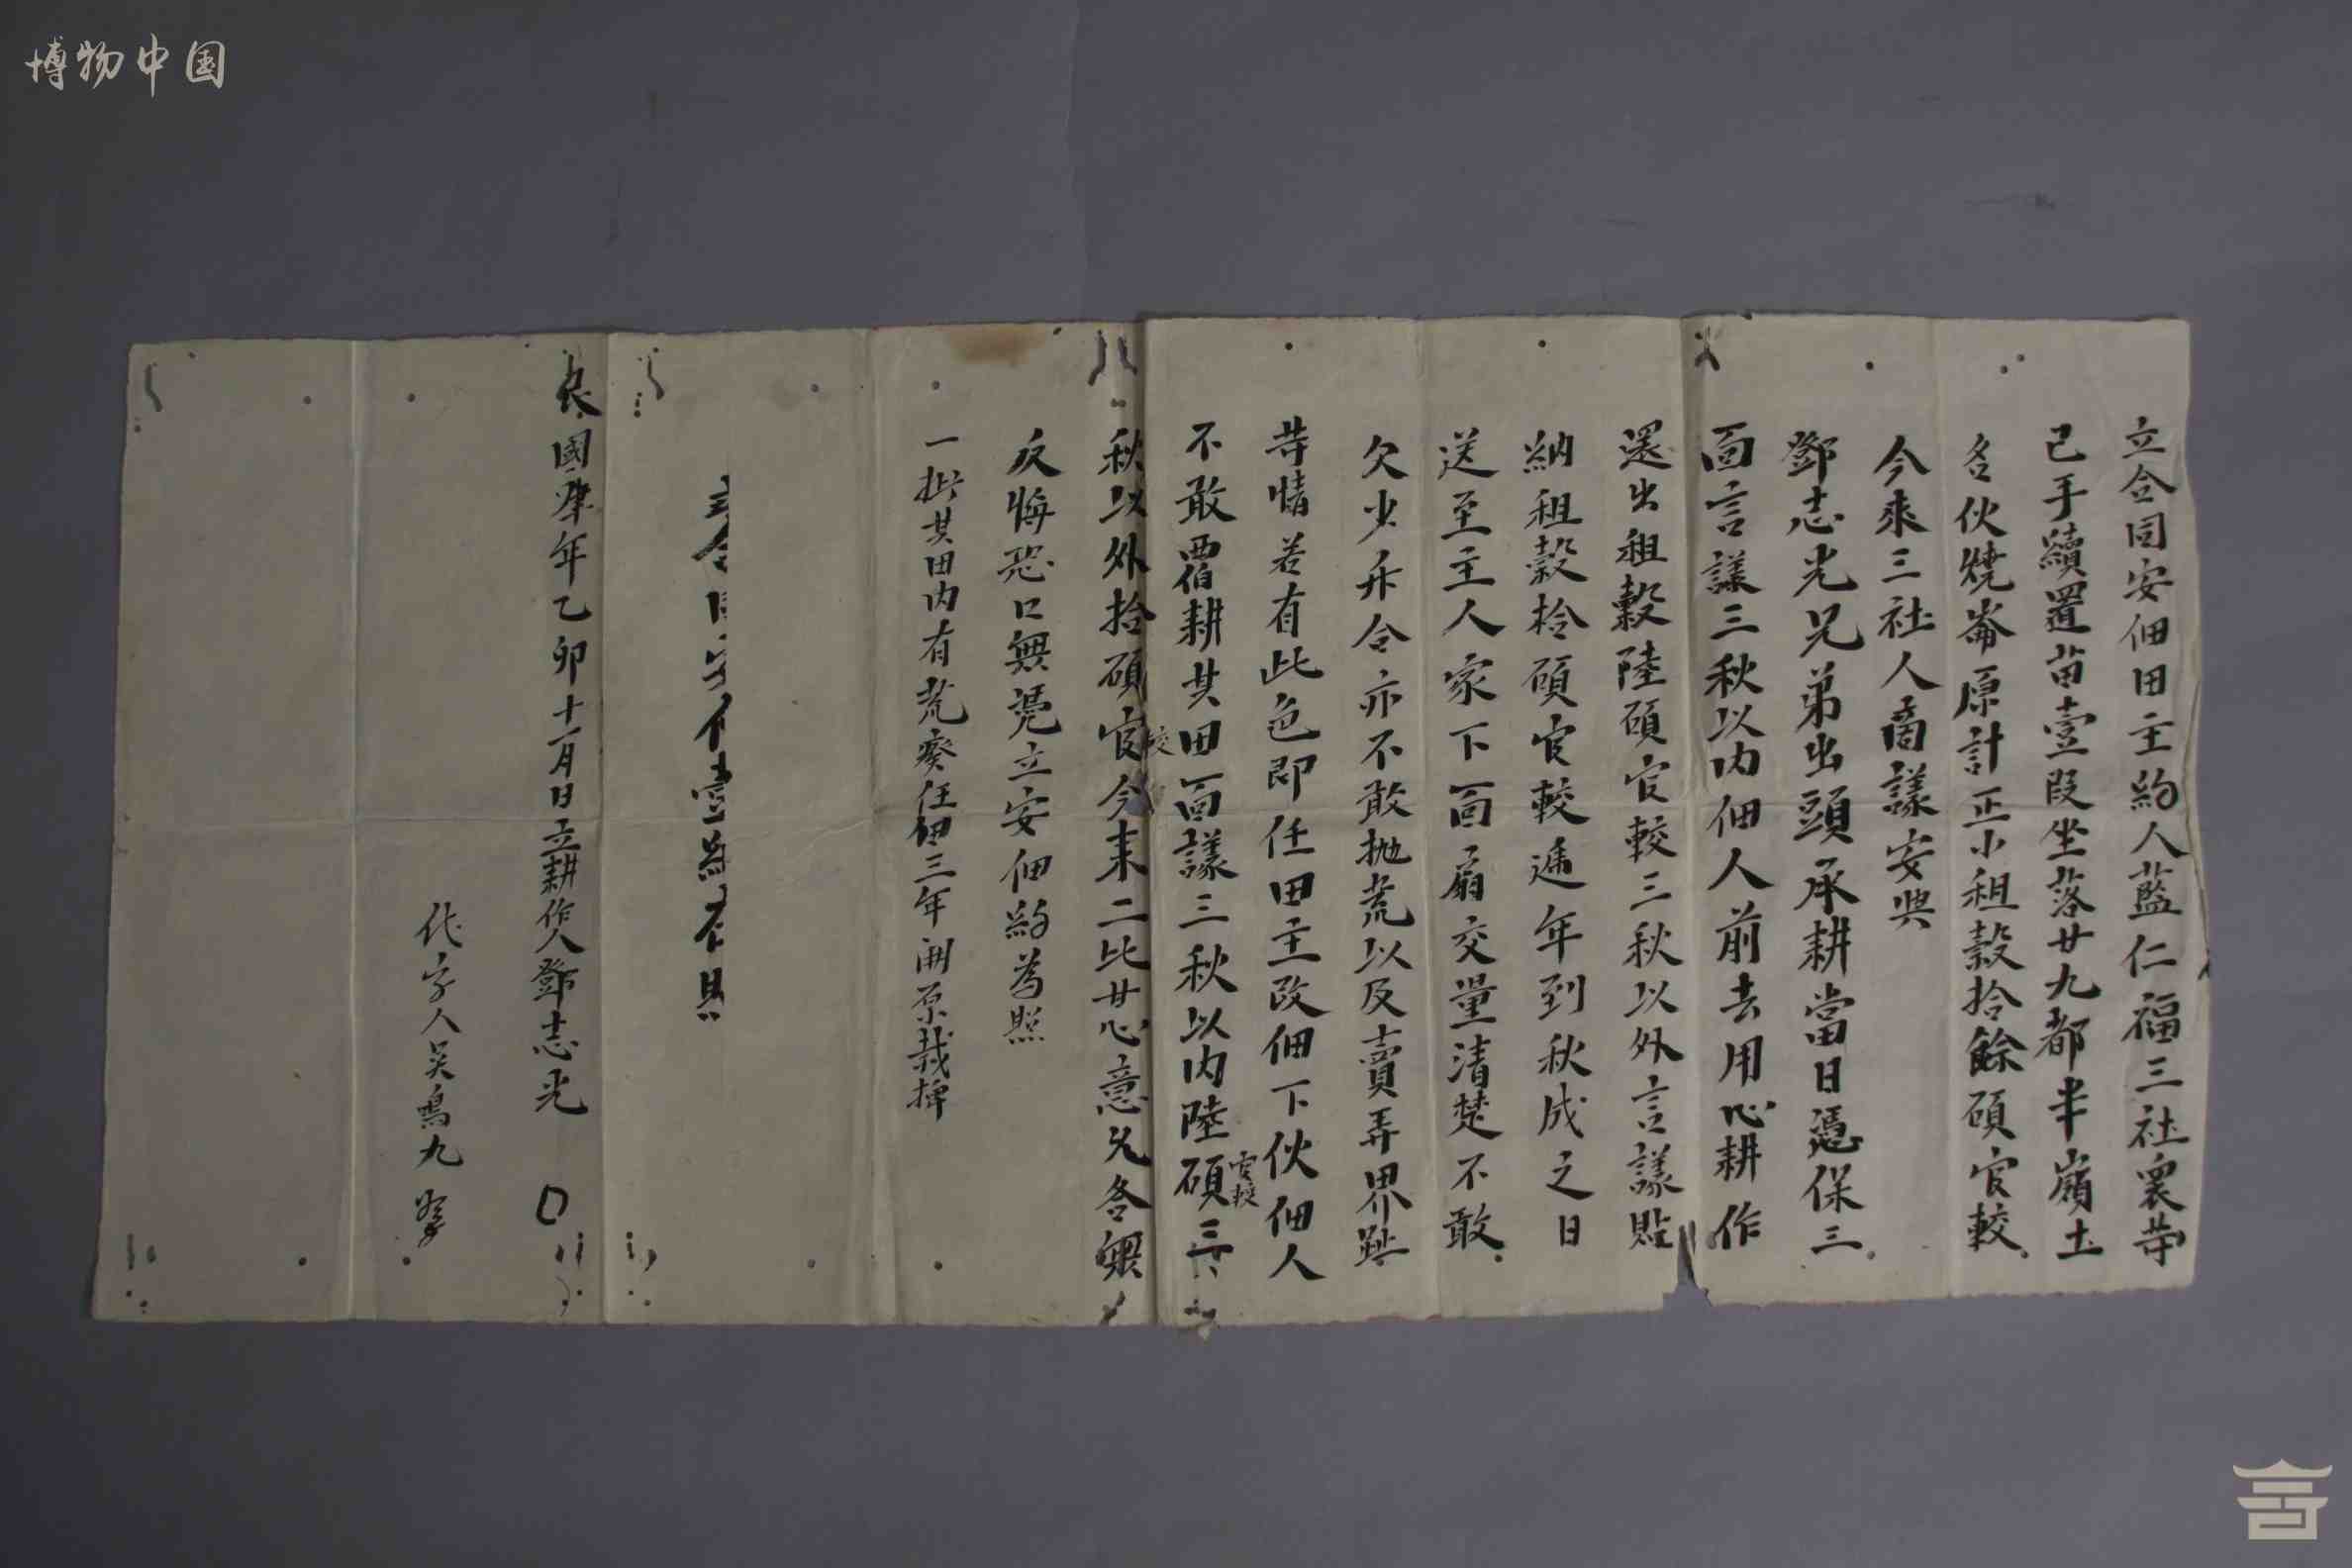 博物中国
立合同安佃田主約人藍仁福三社衆䓁
己手續置苗壹段坐落廿九都半嶺土
名伙燒崙原計正小租穀拾餘碩官較
今來三社人商議安與
鄧志光兄弟出頭承耕當日憑保三
面言議三秋以内佃人前去用心耕作
還出租穀陸碩官較三秋以外言議貼
納租穀拾碩官較遞年到秋成之日
送至主人家下面扇交量清楚不敢
欠少升令亦不敢拋荒以及賣弄界趾
䓁情若有此色即任田主改佃下伙佃人
不敢覇耕其田面議三秋以内陸碩官較三
秋以外拾碩官較今來二比甘心意兄各無
反悔恐口無憑立安佃約為照
一批其田内有荒癈任佃三年開原栽揷
國肇年乙卯十一月日立耕作人鄧志光
代字人吴鳥九